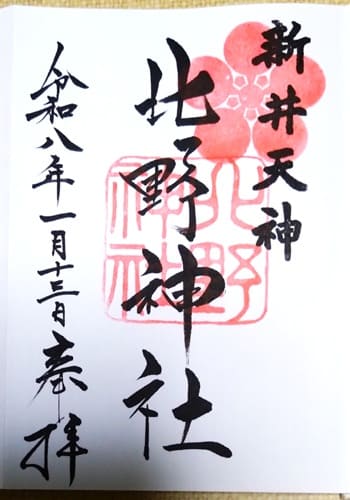 新井天神
北野神社
北野神社
令和八年一月十三日奉拝